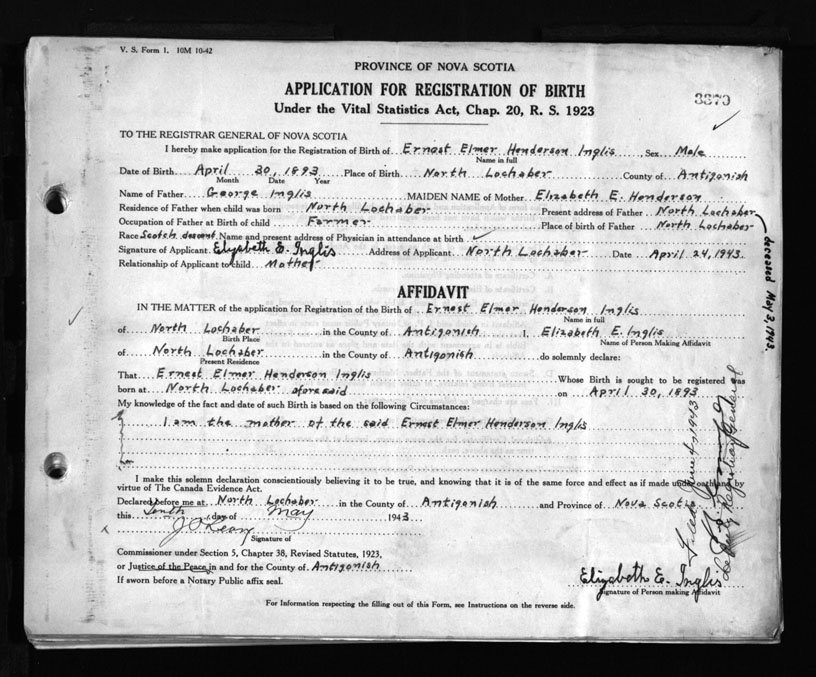 V. S. Form 1. 10M 10-42
PROVINCE OF NOVA SCOTIA
APPLICATION FOR REGISTRATION OF BIRTH
Under the Vital Statistics Act, Chap. 20, R. S. 1923
TO THE REGISTRAR GENERAL OF NOVA SCOTIA
I hereby make application for the Registration of Birth of Ernest Elmer Henderson Inglis, Sex Male
Name in full
Date of Birth April 30, 1893 Place of Birth North Lochaber County of Antigonish
Month Date Year
Name of Father George Inglis MAIDEN NAME of Mother Elizabeth E. Henderson
Residence of Father when child was born North Lochaber Present address of Father North Lochaber
Occupation of Father at Birth of child Farmer Place of birth of Father North Lochaber
Race Scotch descent Name and present address of Physician in attendance at birth
Signature of Applicant Elizabeth E. Inglis Address of Applicant North Lochaber Date April 24, 1943.
Relationship of Applicant to child Mother
deceased May 3, 1943.
AFFIDAVIT
IN THE MATTER of the application for Registration of the Birth of Ernest Elmer Henderson Inglis
Name in full
of North Lochaber in the County of Antigonish I, Elizabeth E. Inglis
Birth Place Name of Person Making Affidavit
of North Lochaber in the County of Antigonish do solemnly declare:
Present Residence
That Ernest Elmer Henderson Inglis Whose Birth is sought to be registered was
born at North Lochaber aforesaid on April 30, 1893
My knowledge of the fact and date of such Birth is based on the following Circumstances:
I am the mother of the said Ernest Elmer Henderson Inglis
I make this solemn declaration conscientiously believing it to be true, and knowing that it is of the same force and effect as if made under oath and by
virtue of The Canada Evidence Act.
Declared before me at North Lochaber in the County of Antigonish and Province of Nova Scotia
this Tenth day of May 1943
Signature of
Commissioner under Section 5, Chapter 38, Revised Statutes, 1923,
or Justice of the Peace in and for the County of Antigonish
If sworn before a Notary Public affix seal.
Elizabeth E. Inglis
Signature of Person making Affidavit
Filed June 4, 1943
Deputy Registrar General
For Information respecting the filling out of this Form, see Instructions on the reverse side.